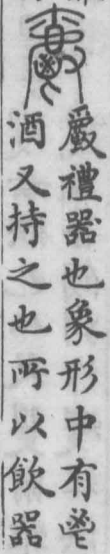 爵
爵禮器也象形中有鬯
酒又持之也所以飲器